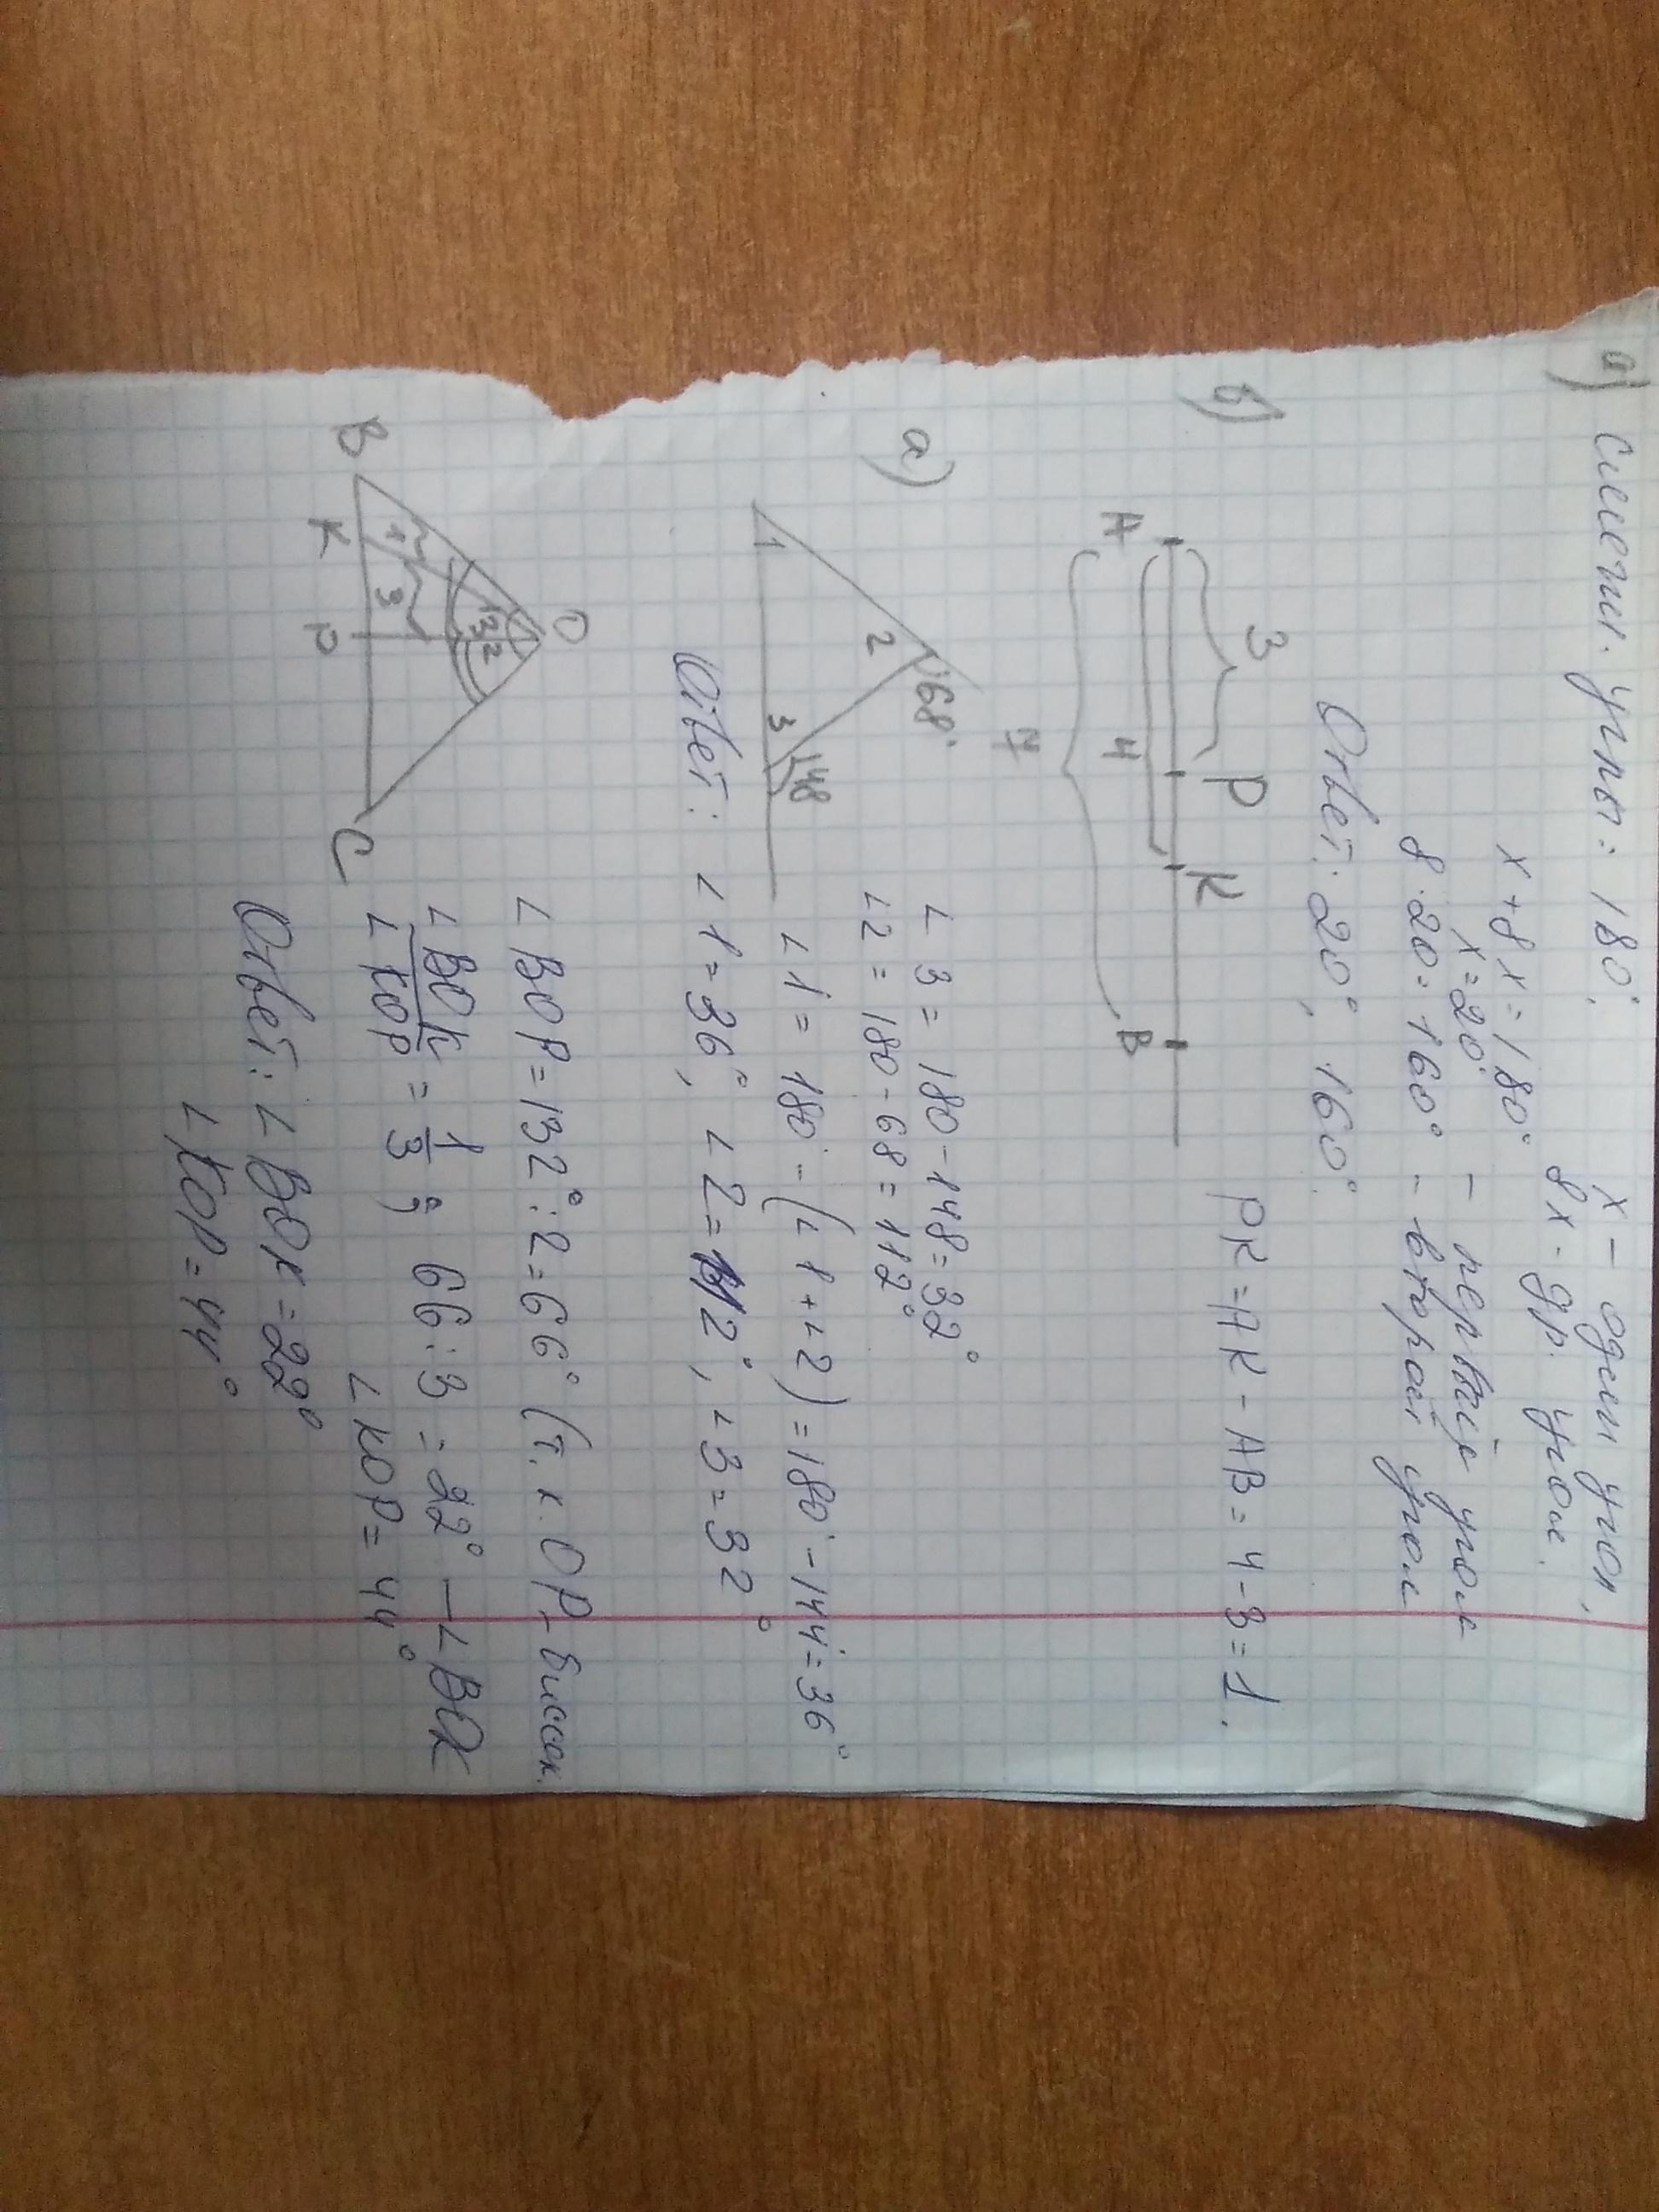 а) смежн. углы = 180°.
x - один угол,
8x - др. угол.
x + 8x = 180°
x = 20° - первый угол
8 · 20 = 160° - второй угол
Ответ: 20°, 160°.
б)
3
P
K
A
4
B
7
PK = AK - AB = 4 - 3 = 1.
а)
68°
2
1
3
148
∠3 = 180 - 148 = 32°
∠2 = 180 - 68 = 112°
∠1 = 180° - (∠1 + ∠2) = 180° - 144° = 36°
Ответ: ∠1 = 36°, ∠2 = 112°, ∠3 = 32°
O
132
1
3
B
K
P
C
∠BOP = 132° : 2 = 66° (т.к. OP - биссек.
∠BOK / ∠KOP = 1/3 ; 66 : 3 = 22° - ∠BOK
∠KOP = 44°
Ответ: ∠BOK = 22°
∠KOP = 44°